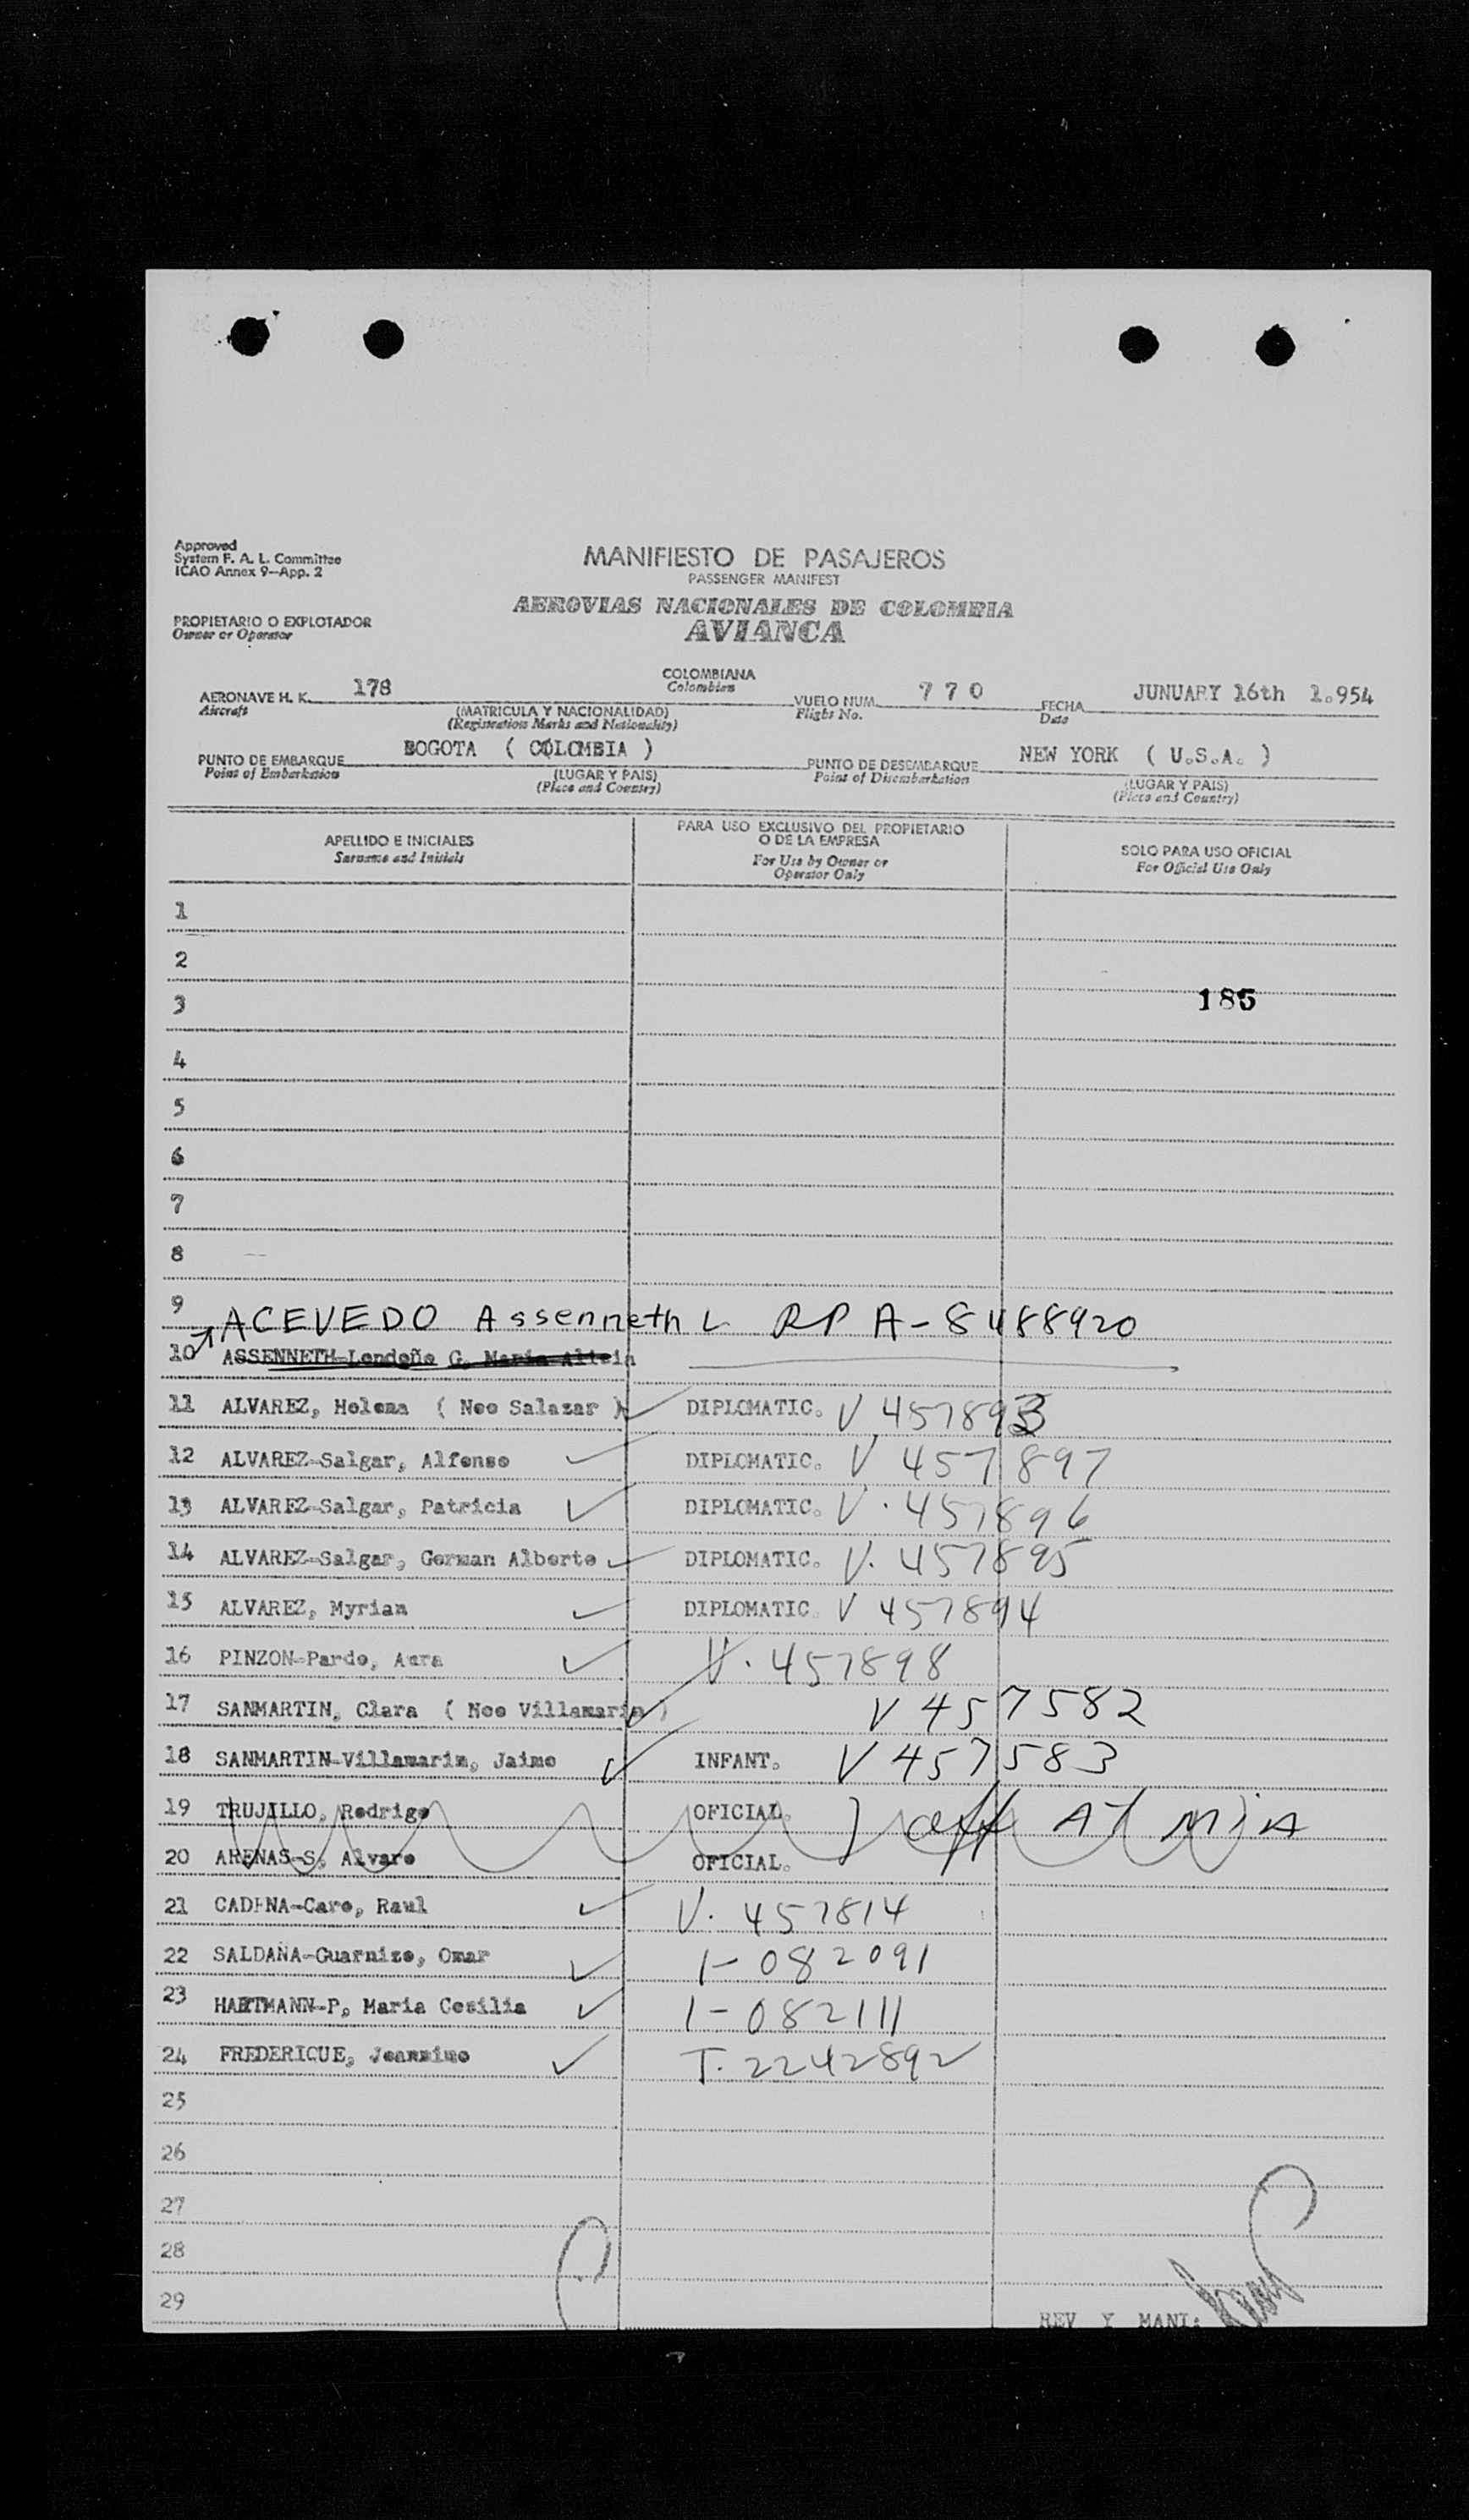 Approved
System F. A. L. Committee
ICAO Annex 9—App. 2
MANIFIESTO DE PASAJEROS
PASSENGER MANIFEST
AEROVIAS NACIONALES DE COLOMBIA
AVIANCA
PROPIETARIO O EXPLOTADOR
Owner or Operator
AERONAVE H. K. 178 COLOMBIANA VUELO NUM. 7 7 0 FECHA JUNUARY 16th 1.954
Aircraft Colombian Flight No. Date
(MATRICULA Y NACIONALIDAD)
(Registration Marks and Nationality)
PUNTO DE EMBARQUE BOGOTA ( COLOMBIA ) PUNTO DE DESEMBARQUE NEW YORK ( U.S.A. )
Point of Embarkation (LUGAR Y PAIS) Point of Disembarkation (LUGAR Y PAIS)
(Place and Country) (Place and Country)
APELLIDO E INICIALES PARA USO EXCLUSIVO DEL PROPIETARIO O DE LA EMPRESA SOLO PARA USO OFICIAL
Surname and Initials For Use by Owner or Operator Only For Official Use Only
1
2
3 185
4
5
6
7
8
9 ACEVEDO Assenneth L RP A-8488920
10 ASSENNETH-Londoño G. Maria
11 ALVAREZ, Helena ( Nee Salazar ) DIPLOMATIC. V 457893
12 ALVAREZ-Salgar, Alfonso DIPLOMATIC. V 457897
13 ALVAREZ-Salgar, Patricia DIPLOMATIC. V. 457896
14 ALVAREZ-Salgar, German Alberto DIPLOMATIC. V. 457895
15 ALVAREZ, Myriam DIPLOMATIC. V 457894
16 PINZON-Pardo, Aura V. 457898
17 SANMARTIN, Clara ( Nee Villamarin ) V 457582
18 SANMARTIN-Villamarin, Jaime INFANT. V 457583
19 TRUJILLO, Rodrigo OFICIAL. off AT MIA
20 ARENAS-S, Alvaro OFICIAL.
21 CADENA-Caro, Raul V. 457814
22 SALDAÑA-Guarnizo, Omar 1-082091
23 HARTMANN-P, Maria Cecilia 1-082111
24 FREDERIQUE, Jeannine T. 2242892
25
26
27
28
29
REV Y MANI: